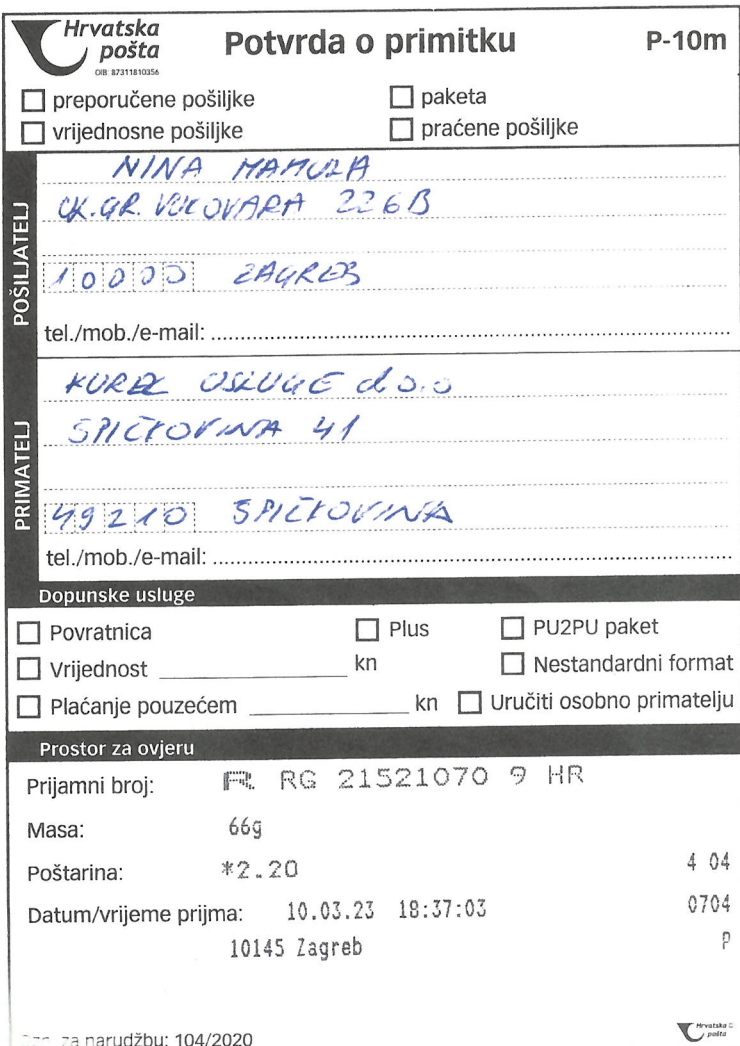 Hrvatska
pošta
OIB: 87311810356
Potvrda o primitku
P-10m
preporučene pošiljke
paketa
vrijednosne pošiljke
praćene pošiljke
POŠILJATELJ
NINA
GR. VUKOVARA 226B
10000 ZAGREB
tel./mob./e-mail:
PRIMATELJ
USLUGE d.o.o
ŠPIČKOVINA 41
49210 ŠPIČKOVINA
tel./mob./e-mail:
Dopunske usluge
Povratnica
Plus
PU2PU paket
Vrijednost kn
Nestandardni format
Plaćanje pouzećem kn
Uručiti osobno primatelju
Prostor za ovjeru
Prijamni broj: R RG 21521070 9 HR
Masa: 66g
Poštarina: *2.20 4 04
Datum/vrijeme prijma: 10.03.23 18:37:03 0704
10145 Zagreb P
za narudžbu: 104/2020
Hrvatska
pošta